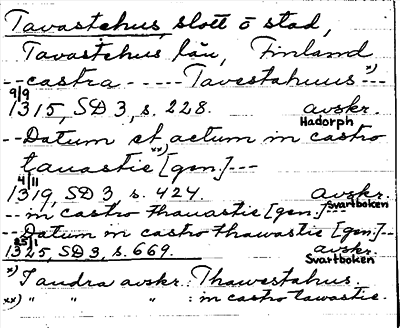 Tavastehus, slott o stad,
Tavastehus län, Finland
---castra --- --- Tavestahuus--- x)
9/9
1315, SD 3, s. 228. avskr.
Hadorph
--Datum et actum in castro
tauastie xx) [gen.]---
4/11
1319, SD 3, s. 424. avskr.
Svartboken
---in castro thauastie [gen.]---
---Datum in castro thawastie [gen.]---
1325, SD 3, s. 669. avskr.
Svartboken
x) I andra avskr.: Thawestahus.
xx) " " " : in castro tawastie.